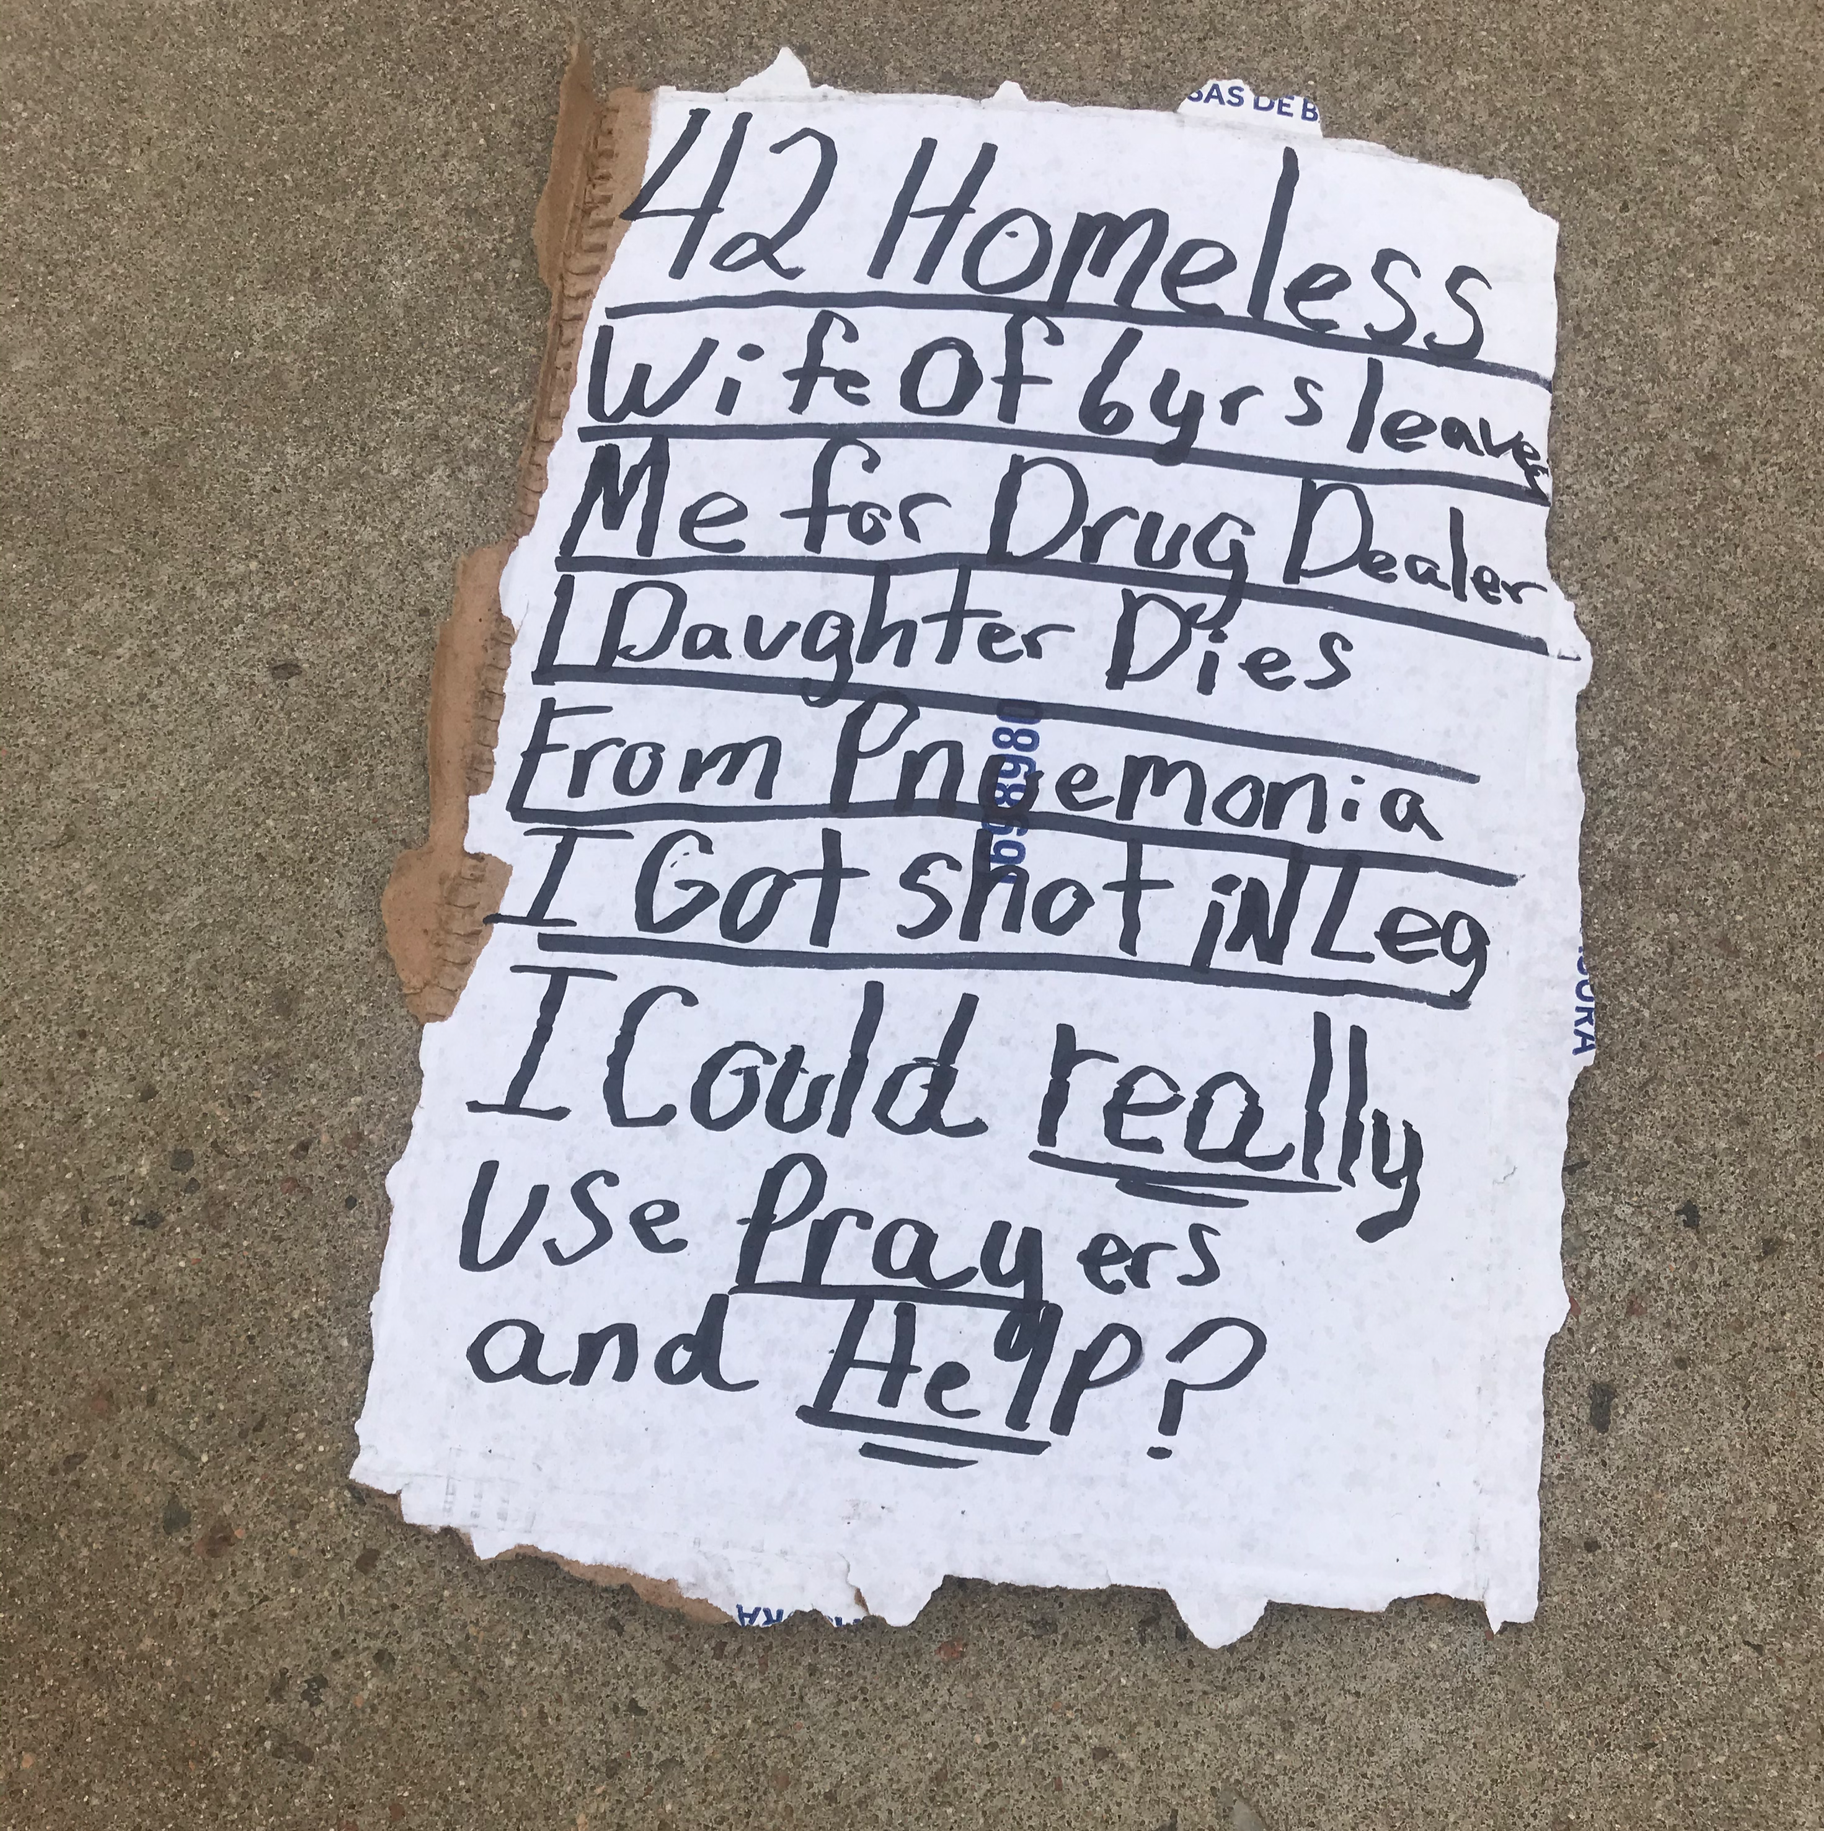 SAS DE B
42 Homeless
Wife Of 6yrs leaves
Me for Drug Dealer
1 Daughter Dies
From Pnuemonia
I Got shot iN Leg
I Could really
use Prayers
and Help?